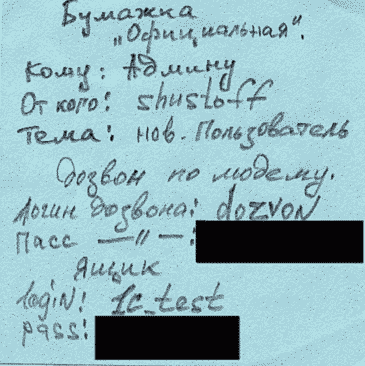 Бумажка
„Официальная".
Кому: Админу
От кого: shustoff
Тема: нов. Пользователь
Дозвон по модему.
Логин дозвона: dozvon
Пасс —〃—:
Ящик
login: 1c_test
pass: